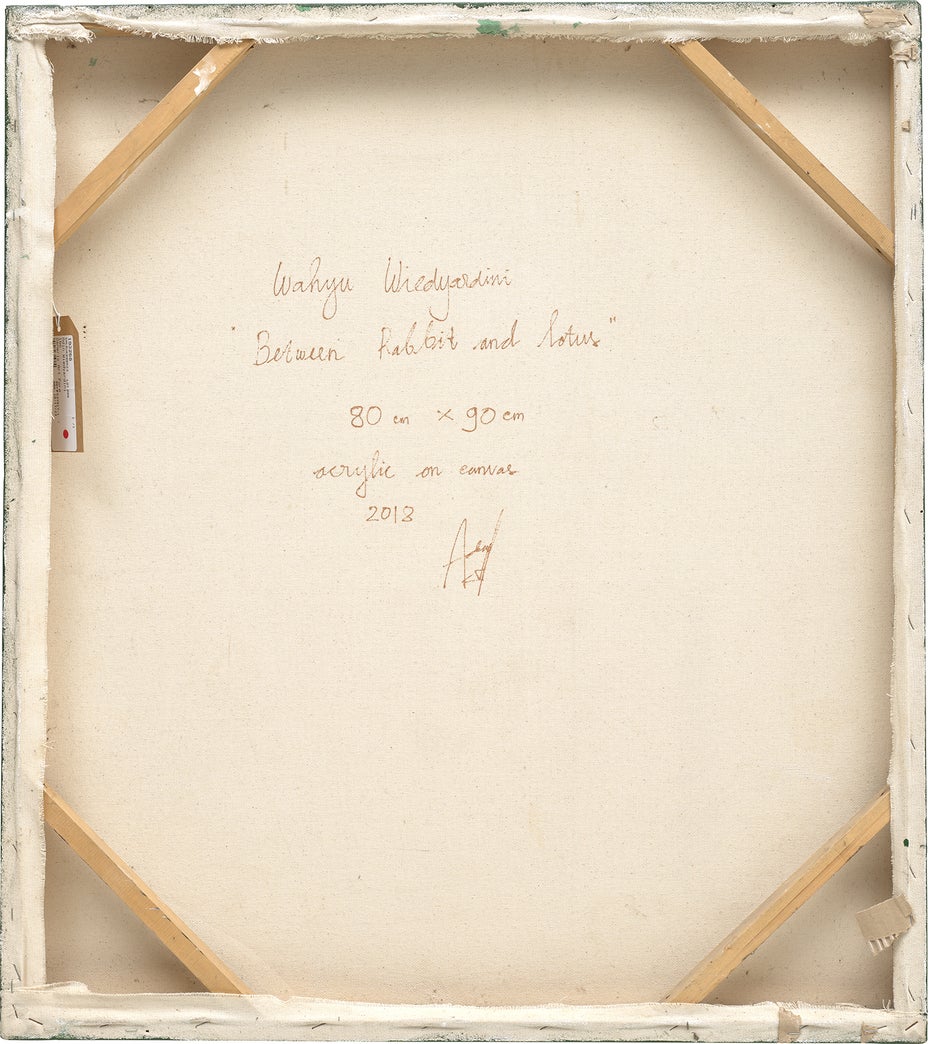 Wahyu Wiedyardini
"Between Rabbit and lotus"
80 cm x 90 cm
acrylic on canvas
2013